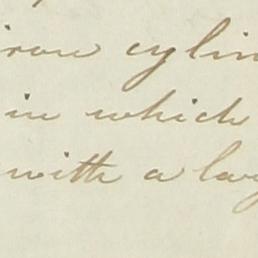 iron cylin
in which
with a lay